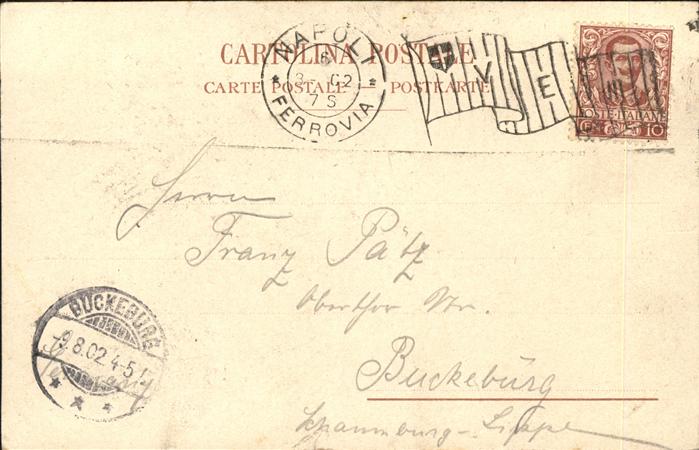 CARTOLINA POSTALE
CARTE POSTALE — POSTKARTE
NAPOLI
6
3- 02
7 S
* FERROVIA *
V E III
POSTE ITALIANE
10
Herrn
Franz Pätz
Oberthor Str.
Buckebürg
Schaumburg-Lippe
Germany
BUCKEBURG
9.8.02.4-5
* * *